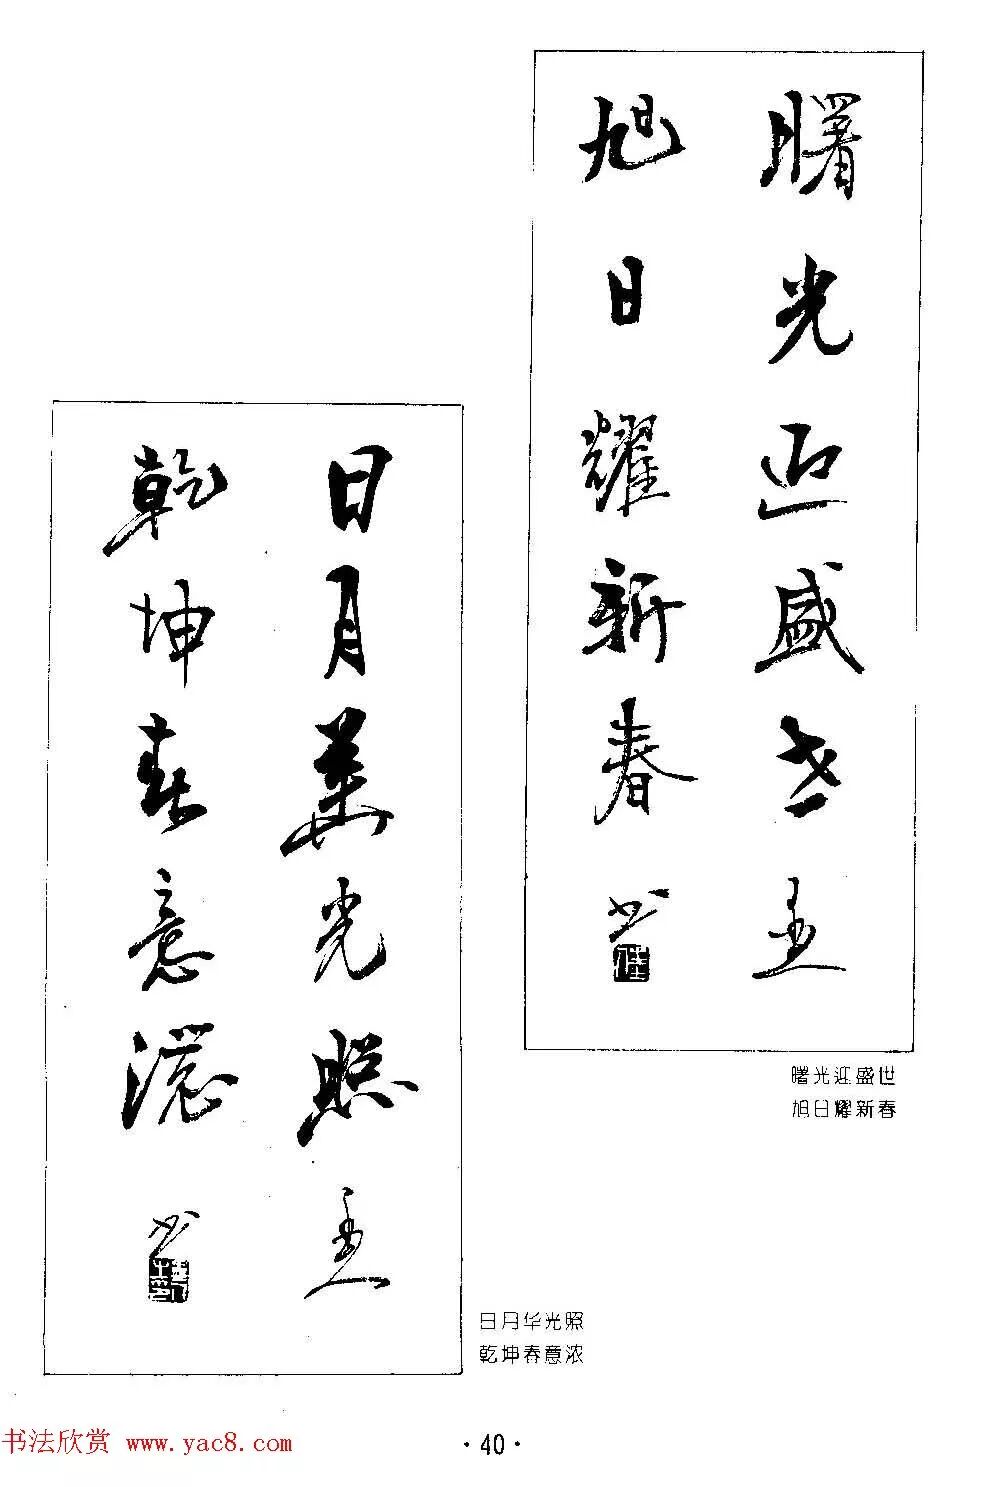 曙光迎盛世
旭日耀新春
曙光迎盛世
旭日耀新春
日月華光照
乾坤春意濃
日月华光照
乾坤春意浓
·40·
书法欣赏 www.yac8.com